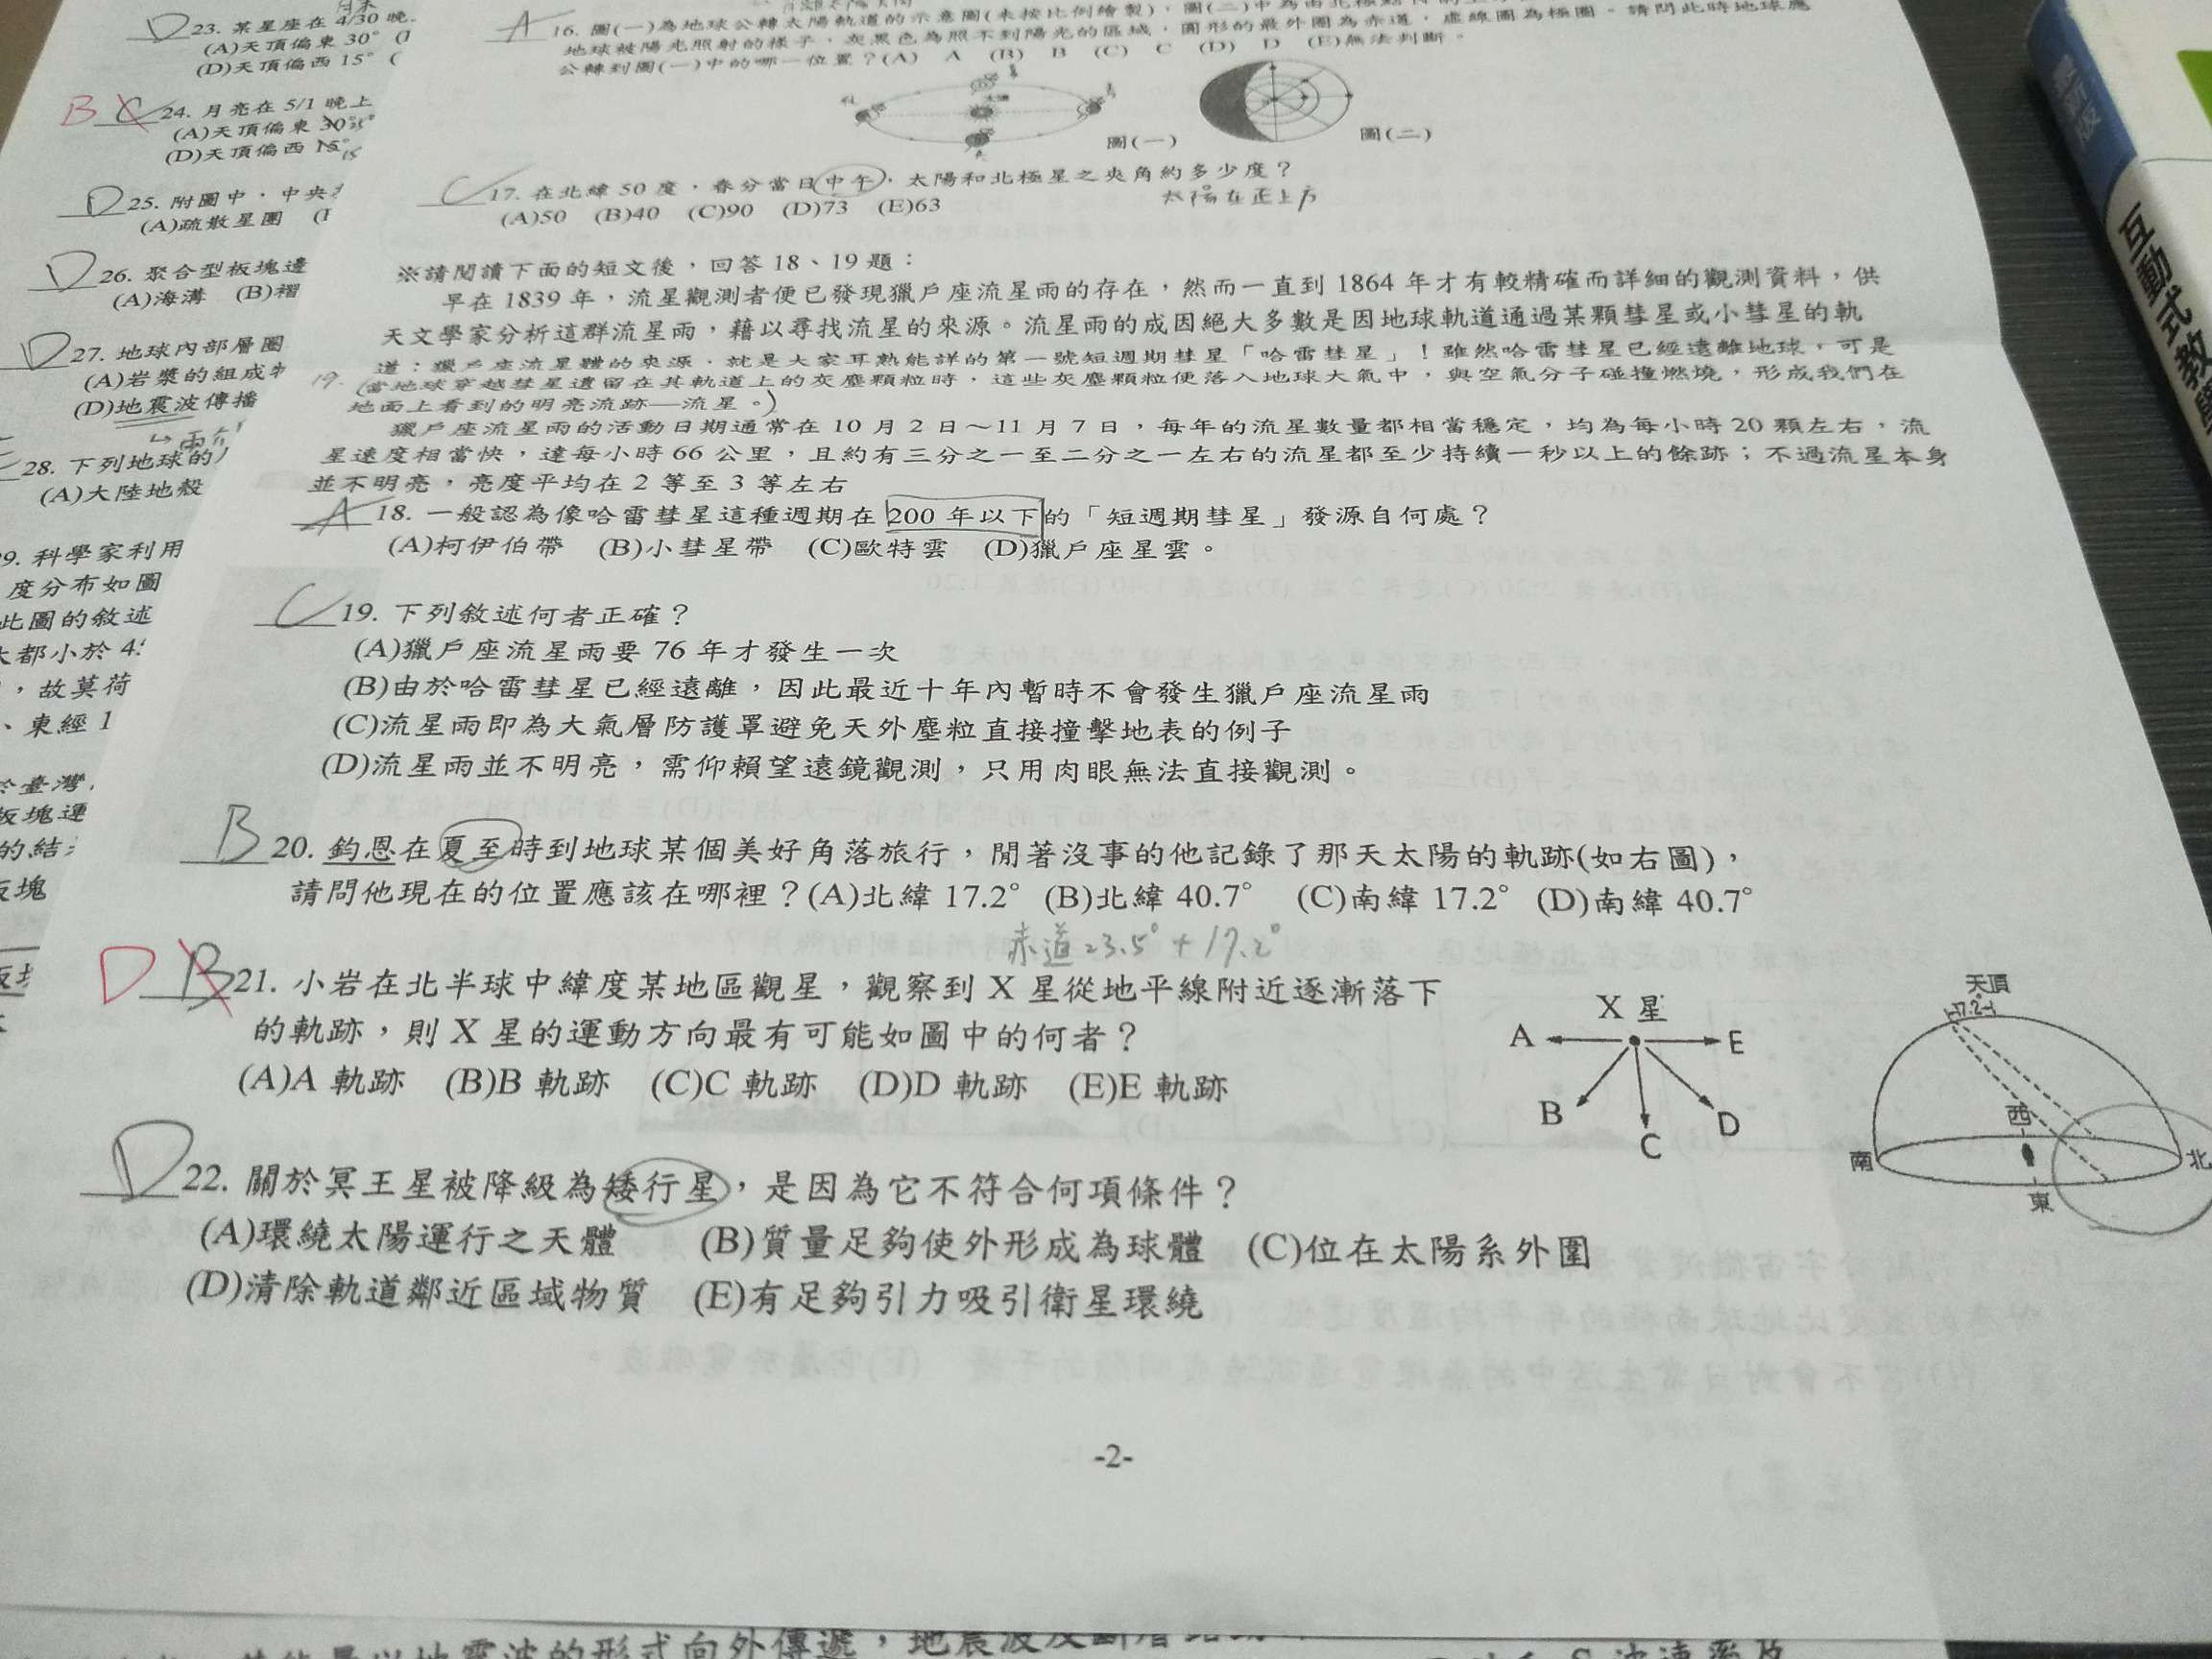 D 23. 某星座在 4/30 晚
(A)天頂偏東 30°
(D)天頂偏西 15° (
B C 24. 月亮在 5/1 晚上
(A)天頂偏東 30°
(D)天頂偏西 15° 15
D 25. 附圖中,中央
(A)疏散星團
D 26. 聚合型板塊邊
(A)海溝 (B)褶
D 27. 地球內部層圈
(A)岩漿的組成
(D)地震波傳播
28. 下列地球的
(A)大陸地殼
29. 科學家利用
度分布如圖
此圖的敘述
大都小於
,故莫荷
、東經 1
於臺灣
板塊運
的結
板塊
A 16. 圖(一)為地球公轉太陽軌道的示意圖(未按比例繪製),圖(二)中為由北極
地球被陽光照射的樣子,灰黑色為照不到陽光的區域,圓形的最外圈為赤道,虛線圈為極圈。請問此時地球應
公轉到圖(一)中的哪一位置?(A) A (B) B (C) C (D) D (E)無法判斷。
圖(一)
圖(二)
C 17. 在北緯 50 度,春分當日中午,太陽和北極星之夾角約多少度?
太陽在正上方
(A)50 (B)40 (C)90 (D)73 (E)63
※請閱讀下面的短文後,回答 18、19 題:
早在 1839 年,流星觀測者便已發現獵戶座流星雨的存在,然而一直到 1864 年才有較精確而詳細的觀測資料,供
天文學家分析這群流星雨,藉以尋找流星的來源。流星雨的成因絕大多數是因地球軌道通過某顆彗星或小彗星的軌
道;獵戶座流星體的來源,就是大家耳熟能詳的第一號短週期彗星「哈雷彗星」!雖然哈雷彗星已經遠離地球,可是
19. (當地球穿越彗星遺留在其軌道上的灰塵顆粒時,這些灰塵顆粒便落入地球大氣中,與空氣分子碰撞燃燒,形成我們在
地面上看到的明亮流跡—流星。)
獵戶座流星雨的活動日期通常在 10 月 2 日~11 月 7 日,每年的流星數量都相當穩定,均為每小時 20 顆左右,流
星速度相當快,達每小時 66 公里,且約有三分之一至二分之一左右的流星都至少持續一秒以上的餘跡;不過流星本身
並不明亮,亮度平均在 2 等至 3 等左右
A 18. 一般認為像哈雷彗星這種週期在 200 年以下的「短週期彗星」發源自何處?
(A)柯伊伯帶 (B)小彗星帶 (C)歐特雲 (D)獵戶座星雲。
C 19. 下列敘述何者正確?
(A)獵戶座流星雨要 76 年才發生一次
(B)由於哈雷彗星已經遠離,因此最近十年內暫時不會發生獵戶座流星雨
(C)流星雨即為大氣層防護罩避免天外塵粒直接撞擊地表的例子
(D)流星雨並不明亮,需仰賴望遠鏡觀測,只用肉眼無法直接觀測。
B 20. 鈞恩在夏至時到地球某個美好角落旅行,閒著沒事的他記錄了那天太陽的軌跡(如右圖),
請問他現在的位置應該在哪裡?(A)北緯 17.2° (B)北緯 40.7° (C)南緯 17.2° (D)南緯 40.7°
赤道23.5°+17.2°
D B 21. 小岩在北半球中緯度某地區觀星,觀察到 X 星從地平線附近逐漸落下
的軌跡,則 X 星的運動方向最有可能如圖中的何者?
(A)A 軌跡 (B)B 軌跡 (C)C 軌跡 (D)D 軌跡 (E)E 軌跡
X 星
A
E
B
C
D
天頂
17.2°
西
南
北
東
D 22. 關於冥王星被降級為矮行星,是因為它不符合何項條件?
(A)環繞太陽運行之天體 (B)質量足夠使外形成為球體 (C)位在太陽系外圍
(D)清除軌道鄰近區域物質 (E)有足夠引力吸引衛星環繞
-2-
的形式向外傳遞,地震波及斷層
互動式教